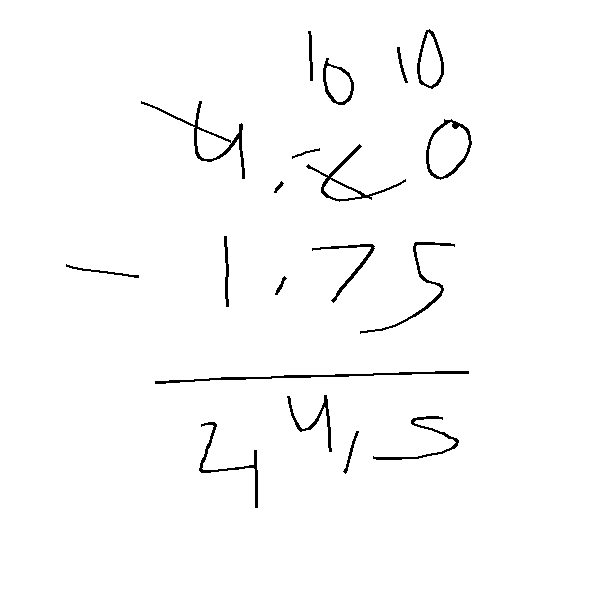 10 10
4,60
- 1,75
24,5